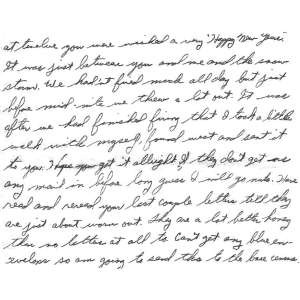 at twelve you were wished a very "Happy New Year."
It was just between you and me and the snow
storm. We hadn't fired much all day but just
before mid-nite we threw a lot out. It was
after we had finished firing that I took a little
walk with myself, faced west and sent it
to you. Hope you get it allright. If they don't get us
any mail in before long guess I will go nuts. I have
read and reread your last couple letters till they
are just about worn out. They are a lot better honey
than no letter at all. Can't get any blue en-
velopes so am going to send this to the base censor.